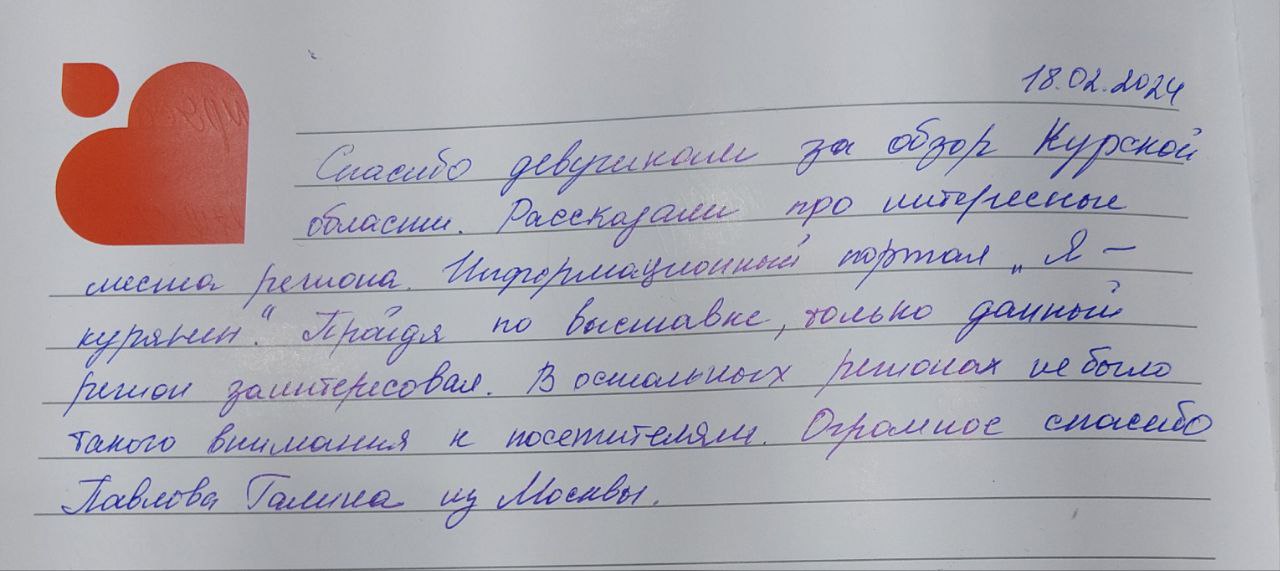 18.02.2024
Спасибо девушкам за обзор Курской
области. Рассказали про интересные
места региона. Информационный портал „Я –
курянин“. Пройдя по выставке, только данный
регион заинтересовал. В остальных регионах не было
такого внимания к посетителям. Огромное спасибо
Павлова Галина из Москвы.